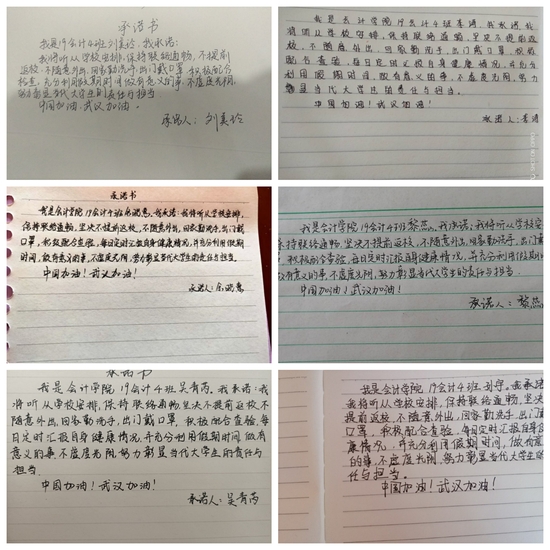 承诺书
我是19会计4班刘美玲,我承诺:
我将听从学校安排,保持联络通畅,不提前
返校,不随意外出,回家勤洗手,出门戴口罩,积极配合
检查,充分利用假期时间做有意义的事,不虚度光阴,
当代大学生的责任与担当。
中国加油!武汉加油。
承诺人:刘美玲
我是会计学院19会计4班李涛,我承诺我
将听从学校安排,保持联络通畅,坚决不提前
返校,不随意外出,回家勤洗手,出门戴口罩,积极
配合查验,每日定时汇报自身健康情况,并充分
利用假期时间,做有意义的事,不虚度光阴,努力
彰显当代大学生的责任与担当。
中国加油!武汉加油!
承诺人:李涛
承诺书
我是会计学院19会计4班余昭惠,我承诺:我将听从学校安排,
保持联络通畅,坚决不提前返校,不随意外出,回家勤洗手,出门戴
口罩,积极配合查验,每日定时汇报自身健康情况,并充分利用假期
时间,做有意义的事,不虚度光阴,努力彰显当代大学生的责任与担当。
中国加油!武汉加油!
承诺人:余昭惠
我是会计学院19会计4班黎燕,我承诺:我将听从学校安
保持联络通畅,坚决不提前返校,不随意外出,回家勤洗手,出门戴
,积极配合查验,每日定时汇报自身健康情况,并充分利用假期
做有意义的事,不虚度光阴,努力彰显当代大学生的责任与担当。
中国加油!武汉加油!
承诺人:黎燕
承诺书
我是会计学院19会计4班吴青芮。我承诺:我
将听从学校安排,保持联络通畅,坚决不提前返校,不
随意外出,回家勤洗手,出门戴口罩,积极配合查验,每
日定时汇报自身健康情况,并充分利用假期时间做有
意义的事,不虚度光阴,努力彰显当代大学生的责任与
担当。
中国加油!武汉加油!
承诺人:吴青芮
我是会计学院19会计4班刘宇。我承
我将听从学校安排,保持联络通畅,坚决不提前
返校,不随意外出,回家勤洗手,出门戴
口罩,积极配合查验,每日定时汇报自身
健康情况,并充分利用假期时间,做有意
的事,不虚度光阴,努力彰显当代大学生的
任与担当。
中国加油!武汉加油!